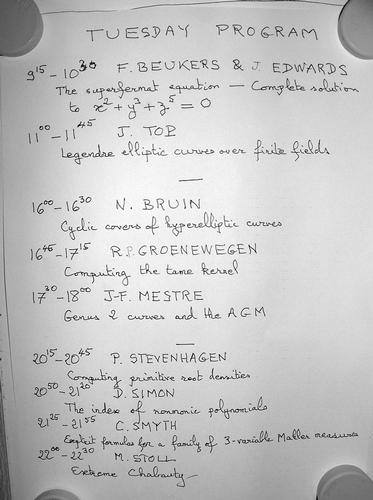 TUESDAY PROGRAM
9¹⁵ - 10³⁰ F. BEUKERS & J. EDWARDS
The superfermat equation — Complete solution
to x² + y³ + z⁵ = 0
11⁰⁰ - 11⁴⁵ J. TOP
Legendre elliptic curves over finite fields
16⁰⁰ - 16³⁰ N. BRUIN
Cyclic covers of hyperelliptic curves
16⁴⁵ - 17¹⁵ R.P. GROENEWEGEN
Computing the tame kernel
17³⁰ - 18⁰⁰ J-F. MESTRE
Genus 2 curves and the AGM
20¹⁵ - 20⁴⁵ P. STEVENHAGEN
Computing primitive root densities
20⁵⁰ - 21²⁰ D. SIMON
The index of nonmonic polynomials
21²⁵ - 21⁵⁵ C. SMYTH
Explicit formulas for a family of 3-variable Mahler measures
22⁰⁰ - 22³⁰ M. STOLL
Extreme Chabauty